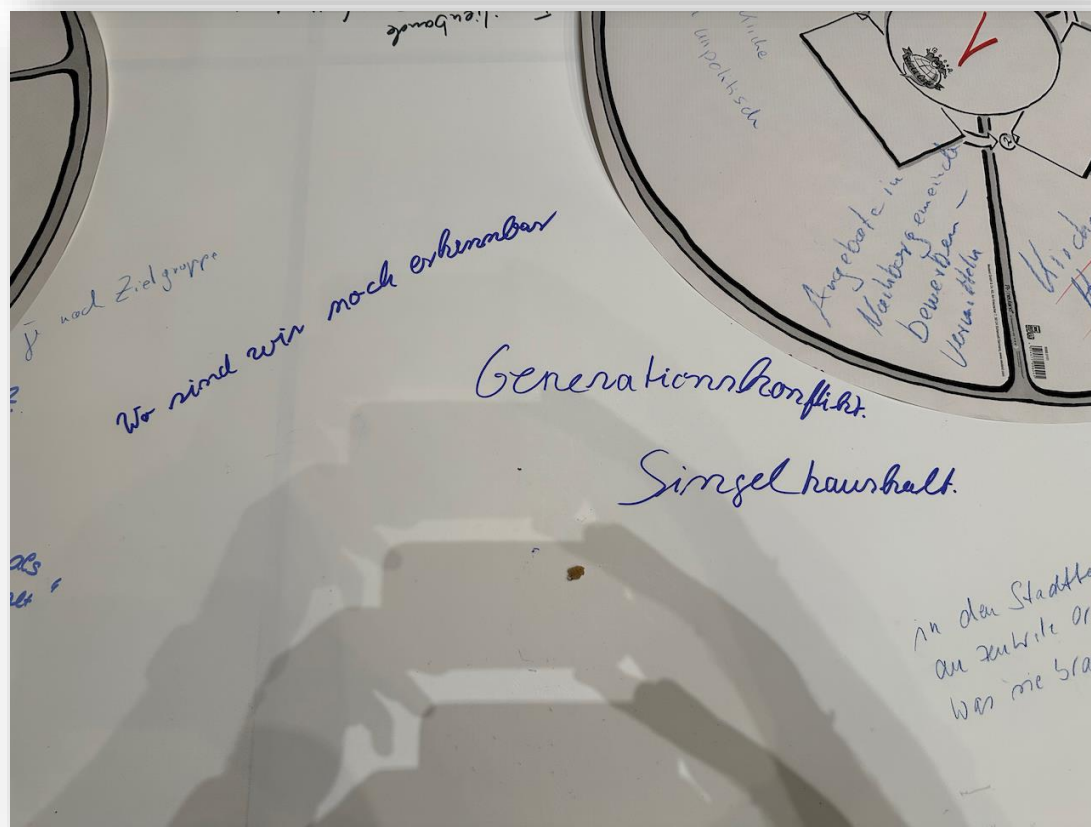 unpolitisch
Angebote in
Nachbargemeinde
bewerben -
vermitteln
je nach Zielgruppe
Wo sind wir noch erkennbar
Generationskonflikt.
Singelhaushalt.
in den
an zentrale
Was sie